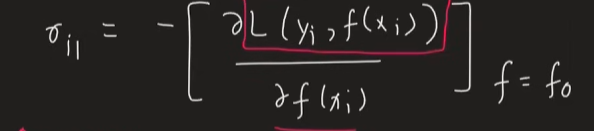 r_{i1} = - [ ∂L(y_i, f(x_i)) / ∂f(x_i) ]_{f = f_0}